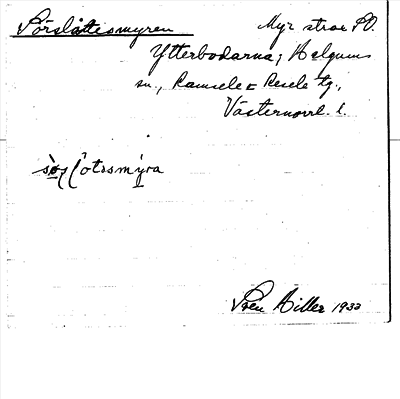 Sörslåttesmyren Myr strax SO.
Ytterbodarna, Helgums
sn., Ramsele o Resele tg.,
Västernorrl. l.
Sven Hiller 1933